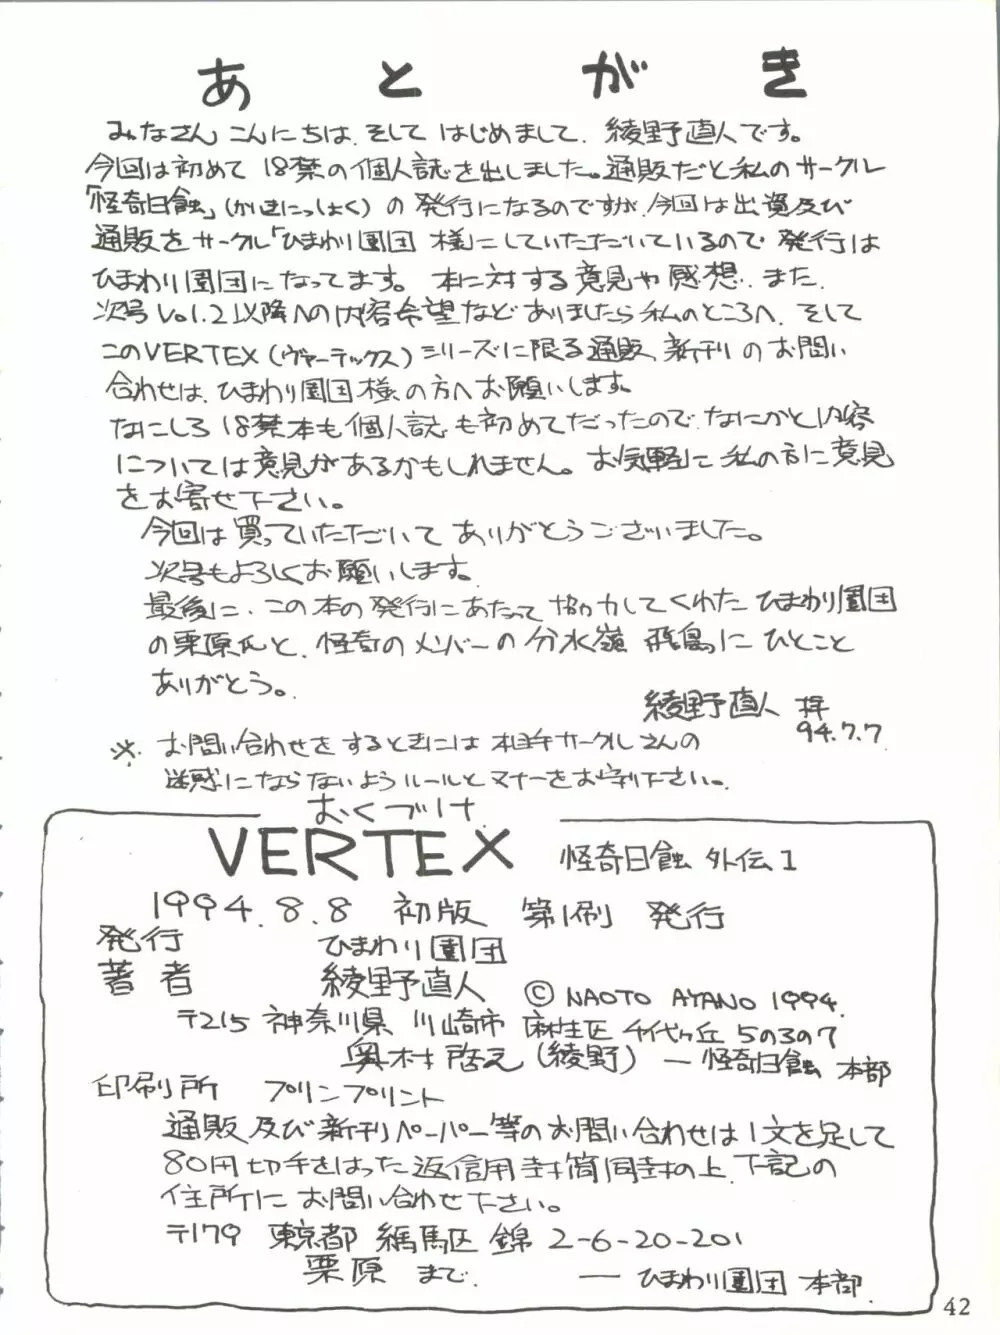 あとがき
みなさん こんにちは、そして はじめまして、綾野直人です。
今回は初めて 18禁の個人誌を出しました。通販だと私のサークル
「怪奇日蝕」(かいきにっしょく)の 発行になるのですが、今回は出資及び
通販をサークル「ひまわり園団 様」にしていただいているので 発行は
ひまわり園団になってます。 本に対する意見や感想、また
次号Vol.2以降への内容希望など ありましたら私のところへ、そして
このVERTEX(ヴァーテックス)シリーズに限る通販、新刊のお問い
合わせは、ひまわり園団様の方へお願いします。
なにしろ 18禁本も個人誌も初めてだったので、なにかと内容
については意見があるかもしれません。お気軽に私の方に意見
をお寄せ下さい。
今回は買っていただいてありがとうございました。
次号もよろしくお願いします。
最後に、この本の発行にあたって協力してくれたひまわり園団
の栗原氏と、怪奇のメンバーの分水嶺 飛鳥にひとこと
ありがとう。
綾野直人 拝
94.7.7
※ お問い合わせをするときには相手サークルさんの
迷惑にならないようルールとマナーをお守り下さい。
おくづけ
VERTEX 怪奇日蝕 外伝1
1994.8.8 初版 第1刷 発行
発行 ひまわり園団
著者 綾野直人 © NAOTO AYANO 1994.
〒215 神奈川県 川崎市 麻生区 千代ヶ丘 5の3の7
奥村啓之(綾野) ― 怪奇日蝕 本部
印刷所 プリンプリント
通販及び新刊ペーパー等のお問い合わせは1文を足して
80円切手をはった返信用封筒同封の上、下記の
住所に お問い合わせ下さい。
〒179 東京都 練馬区 錦 2-6-20-201
栗原 まで. ― ひまわり園団 本部.
42